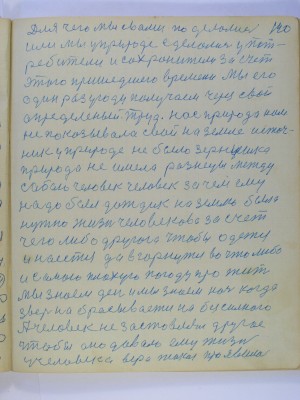 Для чего мы звали по деломся 190
или мы у природе сделолися у пот-
ребители и сохронители за счет
Этого пришедшего времени мы его
один раз у году получаем через свой
определеный труд. нас природа нам
не показывала свой на земле источ-
ник у природе не было зернышка
природа не имела разницы между
собою человек человек зачем ему
надо был дождик на землю была
нужно жизнь человекова за счет
чего либо другога чтобы одется
и наестся да в
и самого плохую погоду про жить
мы знаем ден и мы знаем ноч когда
звер на брасывается на безсильного
А человек не заставлял другое
чтобы оно давало ему жизн
у человека вера такая появилас